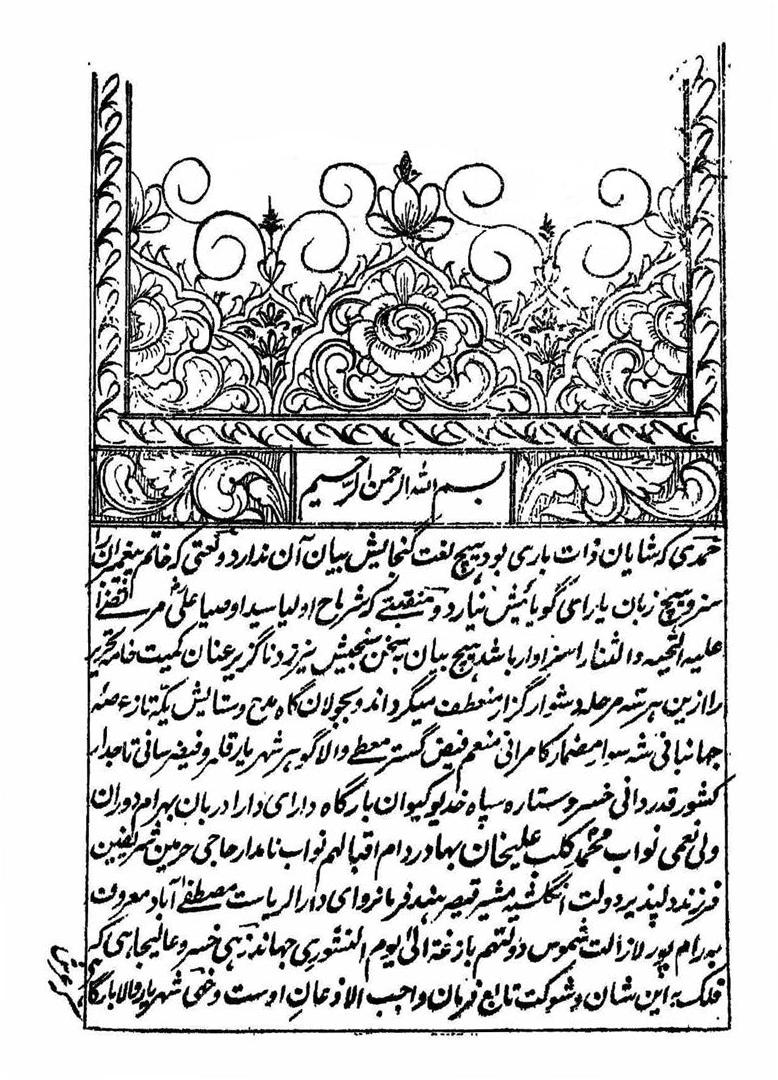 بسم الله الرحمن الرحیم
حمدی که شایان ذات باری بود هیچ لغت گنجایش بیان آن ندارد و نعتی که خاتم پیغمبران را
سزد هیچ زبان یارای گویائیش نیارد و منقبتے که شرباح اولیا سید اوصیا علی مرتضے
علیه التحیه والثنا را سزاوار باشد هیچ بیان به سخن سنجیش نیرزد ناگزیر عنان کمیت خامه تحریر
را ازین هر سه مرحله دشوار گزار منعطف میگرداند و بجولان گاه مدح و ستایش یکه تاز عرصه
جهانبانی شهسوار مضمار کامرانی منعم فیض گستر معطے والا گوهر شهریار قلمرو فیض رسانی تاجدار
کشور قدردانی خسرو ستاره سپاه خدیو کیوان بارگاه دارای دارا دربان بهرام دوران
ولی نعمی نواب محمد کلب علیخان بهادر دام اقبالهم نواب نامدار حاجی حرمین شریفین
فرزند دلپذیر دولت انگلشیه مشیر قیصر هند فرمانروای دار الریاست مصطفے آباد معروف
به رام پور لا زالت شموس دولتهم بازغة الی یوم النشور می جهاند زهی خسرو عالیجاهی که
فلک به این شان و شوکت تابع فرمان واجب الاذعان اوست و خهی شهریار والا بارگا